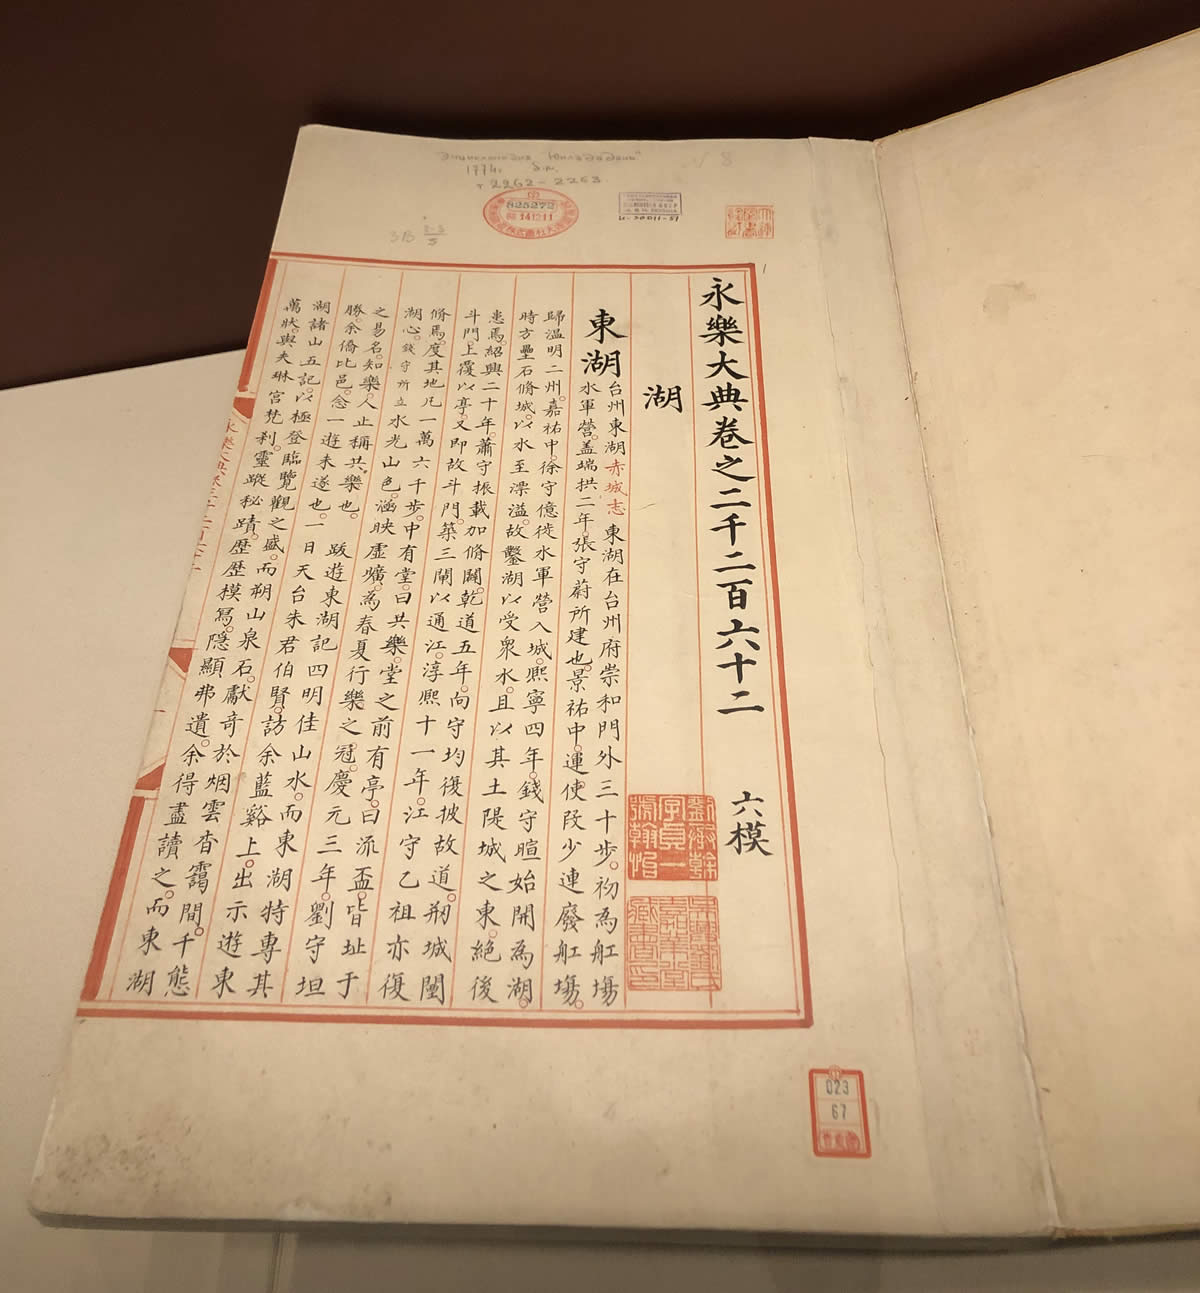 "Энциклопедия Юнлэ дадянь"
8
1774г.
т 2262-2263
825272
14.12.11
永樂大典卷之二千二百六十二 六模
湖
東湖
台州東湖赤城志 東湖在台州府崇和門外三十步。初為舡場
水軍營。蓋端拱二年。張守蔚所建也。景祐中。運使段少連廢舡場。
歸溫明二州。嘉祐中。徐守億徙水軍營入城。熙寧四年。錢守暄始開為湖。
時方壘石脩城。以水至漂溢。故鑿湖以受衆水。且以其土隄城之東。絕後
患焉。紹興二十年。蕭守振載加脩闢。乾道五年。向守均復披故道。剙城闉
斗門。上覆以亭。又即故斗門。築三閘以通江。淳熙十一年。江守乙祖亦復
脩焉。度其地凡一萬六千步。中有堂。曰共樂。堂之前有亭。曰流盃。皆址于
湖心。錢守所立 水光山色。涵映虛曠。為春夏行樂之冠。慶元三年。劉守坦
之易名。知樂。人止稱共樂也。 跋遊東湖記四明佳山水。而東湖特專其
勝。余僑比邑。念一遊未遂也。一日天台朱君伯賢。訪余藍谿上。出示遊東
湖諸山五記。以極登臨覽觀之盛。而朔山泉石。獻奇於烟雲杳靄間。千態
萬狀。與夫琳宮梵刹。靈蹤秘蹟。歷歷模寫。隱顯弗遺。余得盡讀之。而東湖
劉承幹字貞一號翰怡
吳興劉氏嘉業堂藏書印
023
67